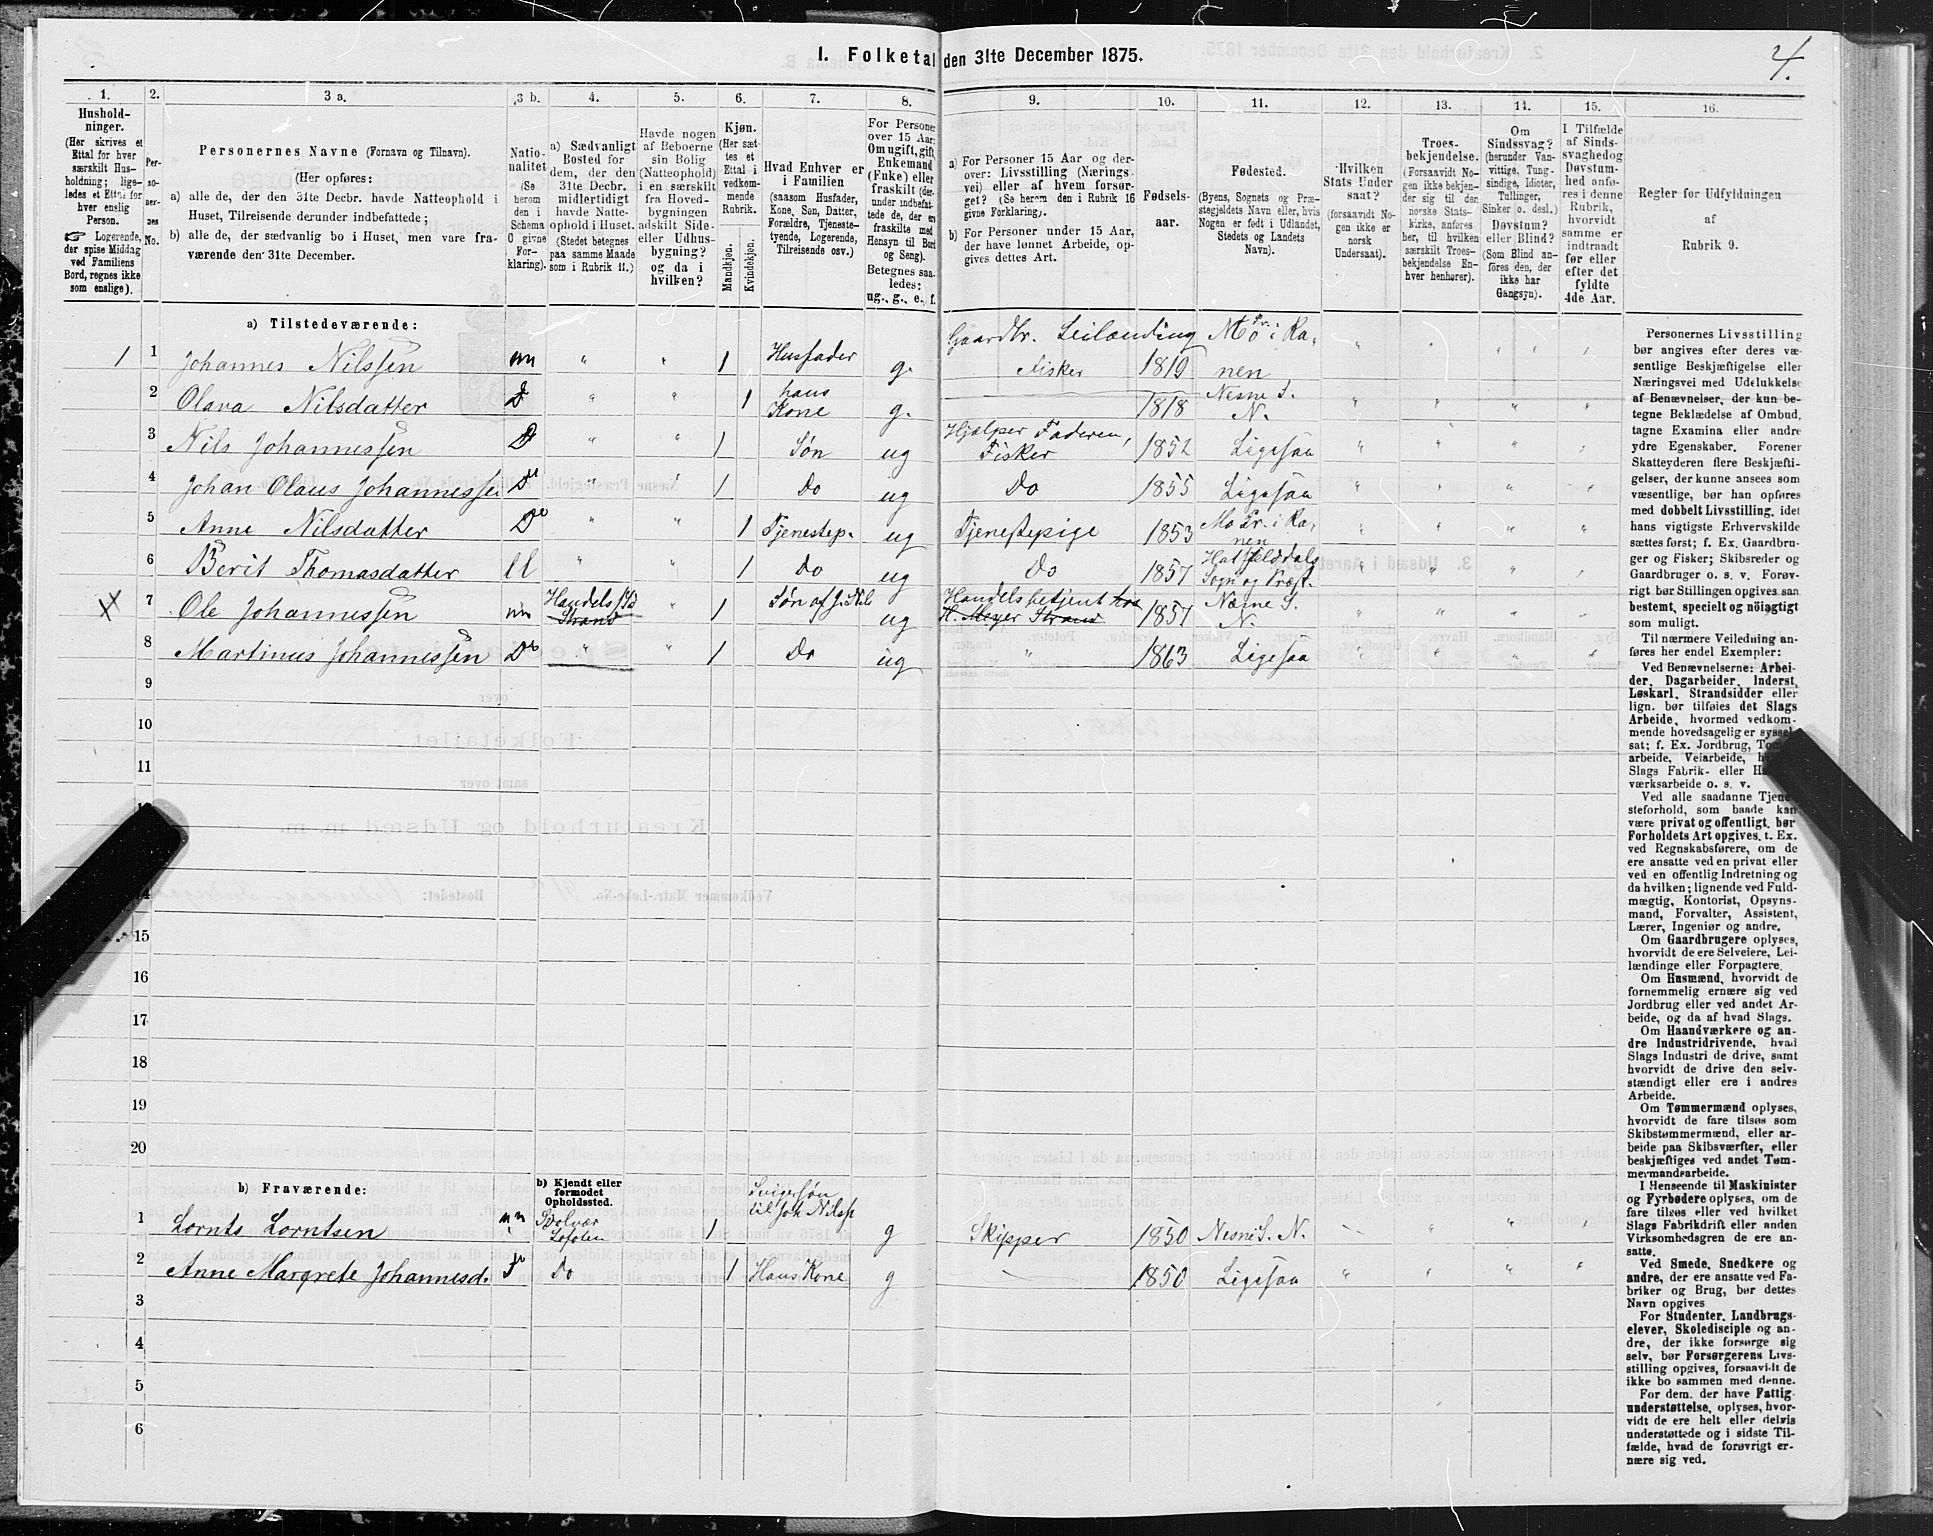 I. Folketal den 31te December 1875.
4.
1. 2. 3 a. 3 b. 4. 5. 6. 7. 8. 9. 10. 11. 12. 13. 14. 15. 16.
Hushold-
ninger.
(Her skrives et
Ettal for hver
særskilt Hus-
holdning; lige-
ledes et Ettal for
hver enslig
Person.
Logerende,
der spise Middag
ved Familiens
Bord, regnes ikke
som enslige).
Per-
so-
ner-
nes
No.
Personernes Navne (Fornavn og Tilnavn).
(Her opføres:
a) alle de, der den 31te Decbr. havde Natteophold i
Huset, Tilreisende derunder indbefattede;
b) alle de, der sædvanlig bo i Huset, men vare fra-
værende den 31te December.
Natio-
nalitet
(Se
herom
den i
Schema
O givne
For-
klaring).
a) Sædvanligt
Bosted for
dem, der den
31te Decbr.
midlertidigt
havde Natte-
ophold i Huset.
(Stedet betegnes
paa samme Maade
som i Rubrik 11.)
Havde nogen
af Beboerne
sin Bolig
(Natteophold)
i en særskilt
fra Hoved-
bygningen
adskilt Side-
eller Udhus-
bygning?
og da i
hvilken?
Kjøn.
(Her sæt-
tes et
Ettal i
vedkom-
mende
Rubrik.
Mandkjøn.
Kvindekjøn.
Hvad Enhver er
i Familien
(saasom Husfader,
Kone, Søn, Datter,
Forældre, Tjeneste-
tyende, Logerende,
Tilreisende osv.)
For Personer
over 15 Aar:
Om ugift, gift,
Enkemand
(Enke) eller
fraskilt (der-
under indbefat-
tede de, der ere
fraskilte med
Hensyn til Bord
og Seng).
Betegnes saa-
ledes:
ug., g., e., f.
a) For Personer 15 Aar og der-
over: Livsstilling (Nærings-
vei) eller af hvem forsør-
get? (Se herom den i Rubrik 16
givne Forklaring).
b) For Personer under 15 Aar,
der have lønnet Arbeide, op-
gives dettes Art.
Fødsels-
aar.
Fødested.
(Byens, Sognets og Præ-
stegjeldets Navn eller, hvis
Nogen er født i Udlandet,
Stedets og Landets
Navn).
Hvilken
Stats Under-
saat?
(forsaavidt No-
gen ikke er
norsk
Undersaat).
Troes-
bekjendelse.
(Forsaavidt No-
gen ikke bekjen-
der sig til den
norske Stats-
kirke, anføres
her, til hvilken
særskilt Troes-
bekjendelse En-
hver henhører).
Om
Sindssvag?
(herunder Van-
vittige, Tung-
sindige, Idioter,
Tullinger,
Sinker o. desl.)
Døvstum?
eller Blind?
(Som Blind an-
føres den, der
ikke har
Gangsyn).
I Tilfælde
af Sinds-
svaghedog
Døvstum-
hed anfø-
res i denne
Rubrik,
hvorvidt
samme er
indtraadt
før eller
efter det
fyldte
4de Aar.
Regler før Udfyldningen
af
Rubrik 9.
a) Tilstedeværende:
1 1 Johannes Nilssen nn " " 1 Husfader g. Gaardbr. Leilænding Fisker 1819 Mo Pr. i Ranen " " " " "
2 Olava Nilsdatter D " " 1 hans Kone g. 1818 Nesne S. N. " " " "
3 Nils Johannessen D " " 1 Søn ug Hjælper Faderen, Fisker 1852 Ligesaa " " " "
4 Johan Olaus Johannessen Do " " 1 Do ug Do 1855 Ligesaa " " " "
5 Anne Nilsdatter Do " " 1 Tjenestep. ug Tjenestepige 1853 Mo Pr. i Ranen " " " "
6 Berit Thomasdatter ll " " 1 Do ug Do 1857 Hatfjelddals Sogn og Præst. " " " "
7 Ole Johannessen nn Handelssted Strand " 1 Søn af J. Nils ug Handelsbetjent hos H. Meyer Strand 1857 Næsne S. N. " " " "
8 Martinus Johannessen Do " " 1 Do ug " 1863 Ligesaa " " " "
9
10
11
15
16
17
18
19
20
b) Fraværende:
b) Kjendt eller
formodet
Opholdssted.
1 Lornts Lorntsen nn Svolvær Lofoten 1 Svigersøn til Joh Nilss g Skipper 1850 Nesne S. N. " " " "
2 Anne Margrete Johannesd. Do Do 1 Hans Kone g 1850 Ligesaa " " " "
3
4
5
6
Personernes Livsstilling
bør angives efter deres væ-
sentlige Beskjæftigelse eller
Næringsvei med Udelukkelse
af Benævnelser, der kun be-
tegne Beklædelse af Ombud,
tagne Examina eller andre
ydre Egenskaber. Forener
Skatteyderen flere Beskjæfti-
gelser, der kunne ansees som
væsentlige, bør han opføres
med dobbelt Livsstilling, idet
hans vigtigste Erhvervskilde
sættes først; f. Ex. Gaardbru-
ger og Fisker; Skibsreder og
Gaardbruger o. s. v. Forøv-
rigt bør Stillingen opgives saa
bestemt, specielt og nöiagtigt
som muligt.
Til nærmere Veiledning an-
føres her endel Exempler:
Ved Benævnelserne: Arbei-
der, Dagarbeider, Inderst,
Løskarl, Strandsidder eller
lign. bør tilføies det Slags
Arbeide, hvormed vedkom-
mende hovedsagelig er syssel-
sat; f. Ex. Jordbrug,
arbeide, Veiarbeide,
Slags Fabrik- eller
værksarbeide o. s. v.
Ved alle saadanne Tjene-
steforhold, som baade kan
være privat og offentligt, bør
Forholdets Art opgives, t. Ex.
ved Regnskabsførere, om de
ere ansatte ved en privat eller
ved en offentlig Indretning og
da hvilken; lignende ved Fuld-
mægtig, Kontorist, Opsyns-
mand, Forvalter, Assistent,
Lærer, Ingeniør og andre.
Om Gaardbrugere oplyses,
hvorvidt de ere Selveiere, Lei-
lændinge eller Forpagtere.
Om Husmænd, hvorvidt de
fornemmelig ernære sig ved
Jordbrug eller ved andet Ar-
beide, og da af hvad Slags.
Om Haandværkere og an-
dre Industridrivende, hvad
Slags Industri de drive, samt
hvorvidt de drive den selv-
stændigt eller ere i andres
Arbeide.
Om Tømmermænd oplyses,
hvorvidt de fare tilsøs som
Skibstømmermænd, eller ar-
beide paa Skibsværfter, eller
beskjæftiges ved andet Tøm-
mermandsarbeide.
I Henseende til Maskinister
og Fyrbødere oplyses, om de
fare tilsøs eller ved hvilket
Slags Fabrikdrift eller anden
Virksomhedsgren de ere an-
satte.
Ved Smede, Snedkere og
andre, der ere ansatte ved Fa-
briker og Brug, bør dettes
Navn opgives
For Studenter, Landbrugs-
elever, Skoledisciple og an-
dre, der ikke forsørge sig
selv, bør Forsørgerens Livs-
stilling opgives, forsaavidt de
ikke bo sammen med denne.
For dem, der have Fattig-
understøttelse, oplyses, hvor-
vidt de ere helt eller delvis
understøttede og i sidste Til-
fælde, hvad de forøvrigt er-
nære sig ved.